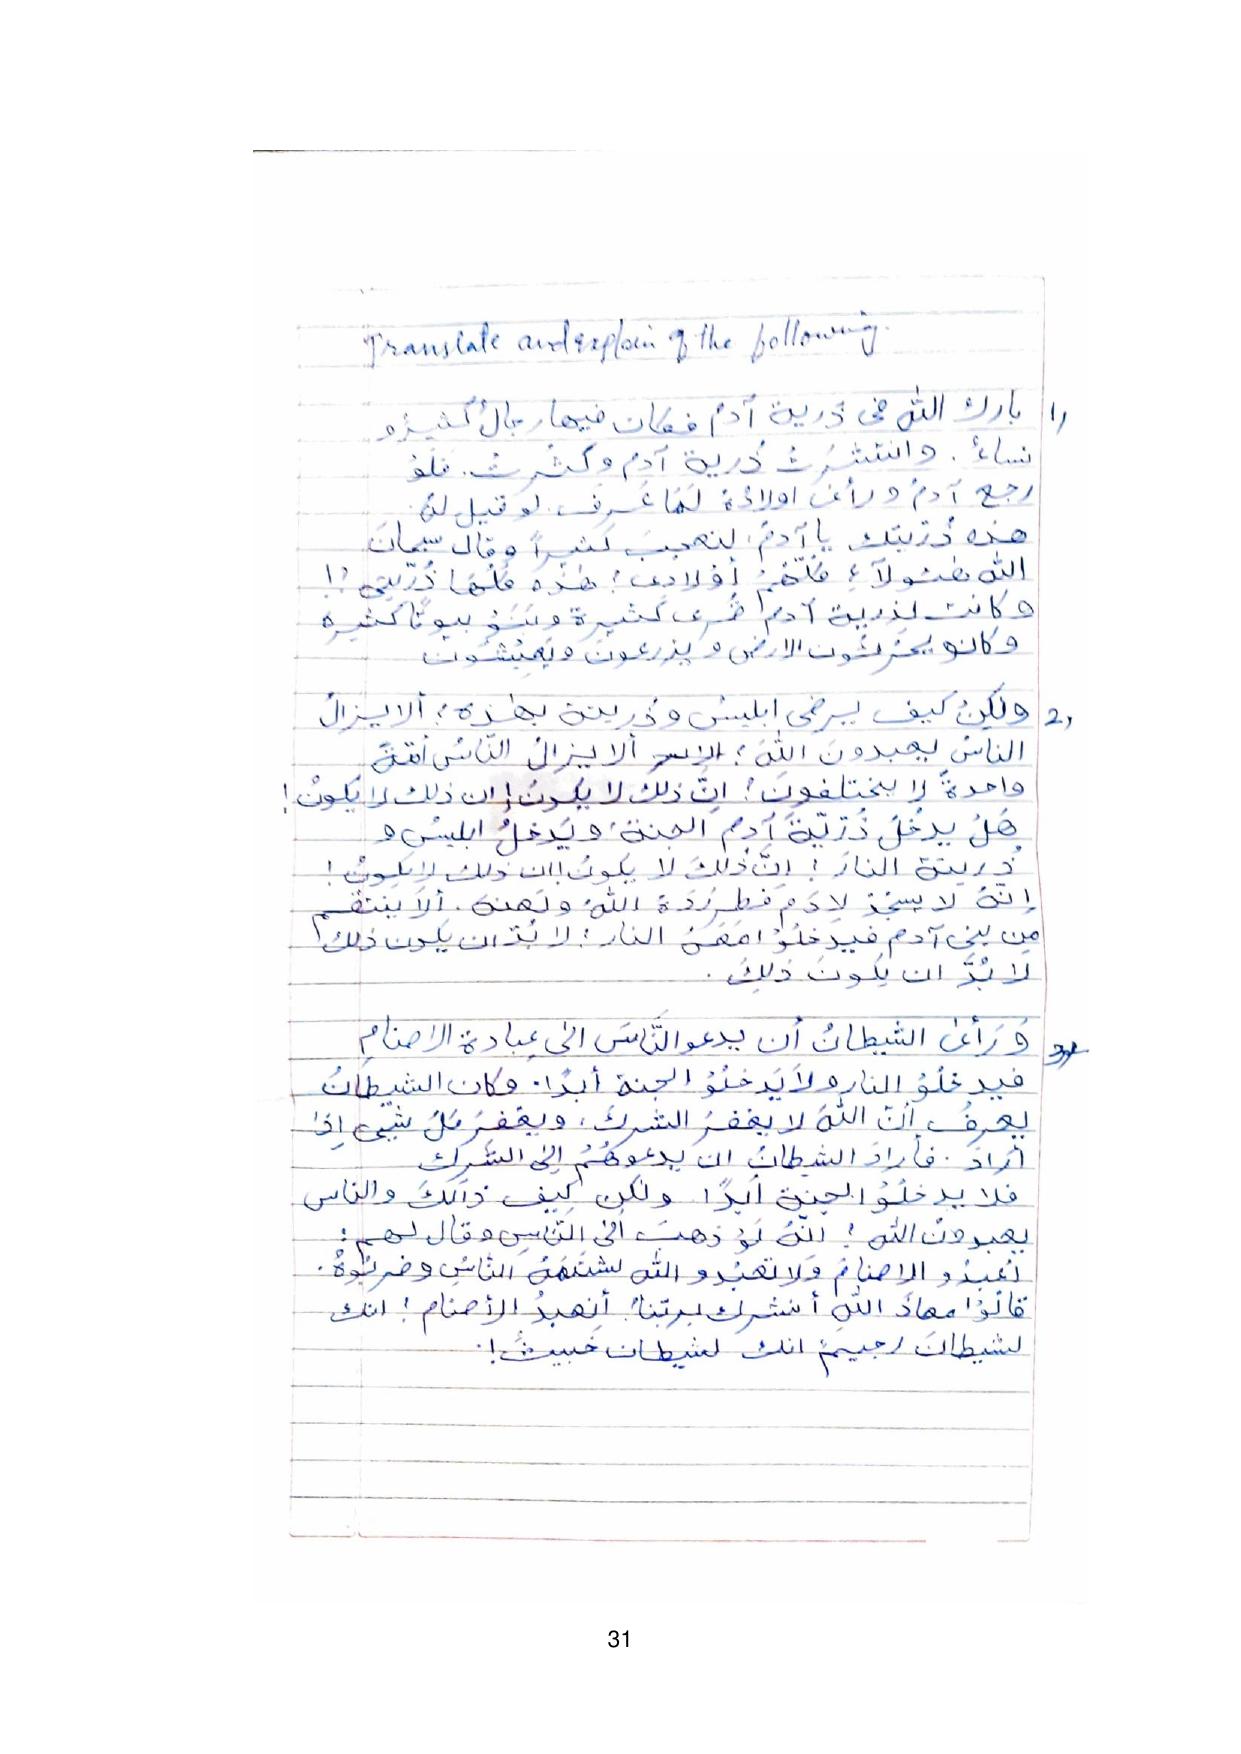 Translate and explain of the following.
1) بارك الله فى ذرية آدم فكان فيها رجالٌ كثيرٌ و
نساءٌ . وانتشرت ذُرية آدم وكثُرتْ. فَلَوْ
رجع آدمُ ورأىٰ اولادَهُ لَمَا عَرفَ. لو قيل لهُ
هذه ذُرّيتك ياآدمُ، لتعجب كثيراً وقال سبحان
الله هٰؤلآءِ كُلّهُمْ أوْلادى! هٰذه كُلُّها ذُرّيتى؟!
وكانت لذرية آدم قُرى كثيرة وبَنَوْ بيوتًا كثيره
وكانو يحرثُون الارض و يزرعون ويَعِيشُون
2) ولكنْ كيف يرضى ابليسُ وذريته بهٰذه؛ ألا يزالُ
الناسُ يعبدونَ اللهَ؛ ألا يزالُ النّاسُ أمّةً
واحدةً لا يختلفونَ! إنّ ذلك لا يكونُ! ان ذلك لا يكونُ!
هَلْ يدخُلُ ذُرّيّةَ آدم الجنة، ويَدخلُ ابليسُ و
ذُريتة النارَ! إنّ ذلك لا يكونُ! ان ذلك لا يكونُ!
إنّهُ لا يسجُدْ لادَمَ فطرَدَهُ اللهُ ولعنهُ. ألا ينتقم
مِن بنى آدم فيدخلُوْا معَهُ النار! لا بُدّ ان يكون ذلك!
لا بُدَّ ان يكونَ ذلِكَ .
3) وَرَأىٰ الشيطانُ أن يدعو النَّاسَ الىٰ عِبادة الاصنامِ
فيدخلُوْ النار ولاَ يَدخلُوْ الجنة أبدًا. وكان الشيطانُ
يعرفُ أنّ اللهَ لا يغفرُ الشرك، ويغفرُ كلَّ شيئٍ إذا
أرادَ. فأرادَ الشيطانُ ان يدعوهُمْ إلى الشرك
فلا يدخلُوْ الجنة أبدًا ولكن كيف ذالكَ والناس
يعبدونَ الله! انّهُ لَوْ ذهبَ الى النّاسِ وقال لهم:
اُعبدُو الاصنامَ ولا تعبُدو الله لشتَمَهُ النّاسُ وضربُوهُ.
قالُوْا معاذَ اللهِ أنشرك بربّنا! أنعبدُ الأصنام! انك
لشيطانٌ رجيمٌ انك لشيطان خبيثٌ!.
31